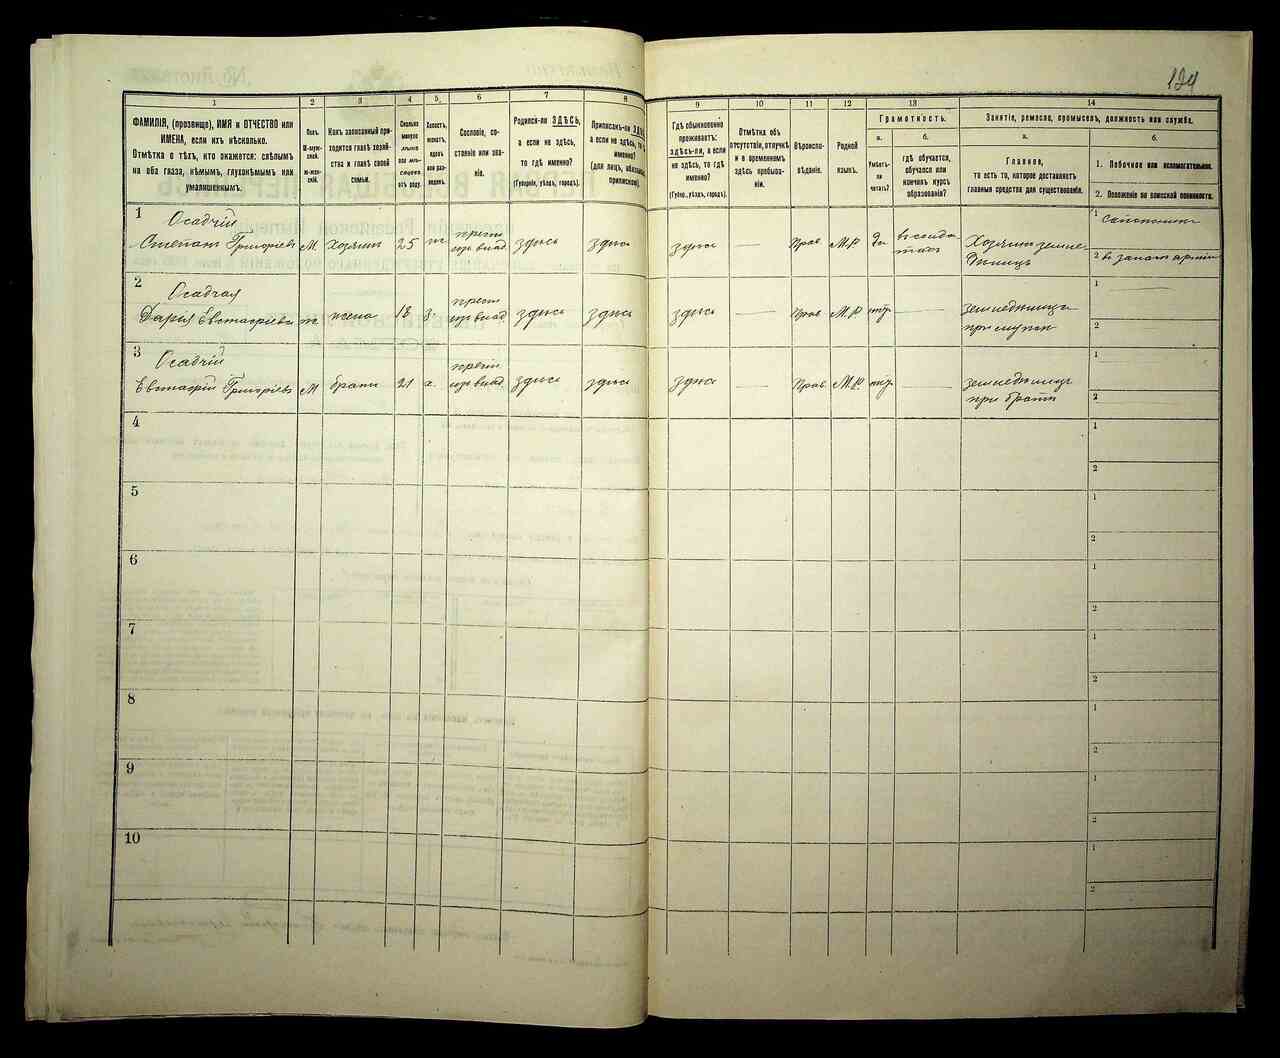 124
1
2
3
4
5
6
7
8
9
10
11
12
13
14
ФАМИЛІЯ, (прозвище), ИМЯ и ОТЧЕСТВО или
ИМЕНА, если ихъ нѣсколько.
Отмѣтка о тѣхъ, кто окажется: слѣпымъ
на оба глаза, нѣмымъ, глухонѣмымъ или
умалишеннымъ.
Полъ.
М-муж-
ской.
Ж-жен-
скій.
Какъ записанный при-
ходится главѣ хозяй-
ства и главѣ своей
семьи.
Сколько
минуло
лѣтъ
или мѣ-
сяцевъ
отъ роду.
Холостъ,
женатъ,
вдовъ
или раз-
веденъ.
Сословіе, со-
стояніе или зва-
ніе.
Родился-ли ЗДѢСЬ,
а если не здѣсь,
то гдѣ именно?
(Губернія, уѣздъ, городъ).
Приписанъ-ли ЗДѢСЬ,
а если не здѣсь, то гдѣ
именно?
(для лицъ, обязанныхъ
припискою).
Гдѣ обыкновенно
проживаетъ:
здѣсь-ли, а если
не здѣсь, то гдѣ
именно?
(Губерн., уѣздъ, городъ).
Отмѣтка объ
отсутствіи, отлучкѣ
и о временномъ
здѣсь пребыва-
ніи.
Вѣроиспо-
вѣданіе.
Родной
языкъ.
Грамотность.
а.
Умѣетъ-
ли
читать?
б.
Гдѣ обучается,
обучался или
кончилъ курсъ
образованія?
Занятіе, ремесло, промыселъ, должность или служба.
а.
Главное,
то есть то, которое доставляетъ
главныя средства для существованія.
б.
1. Побочное или вспомогательное.
2. Положеніе по воинской повинности.
1
Осадчій
Степанъ Григоріевъ
М
хозяин
25
ж
крест
изъ влад
здѣсь
здѣсь
здѣсь
—
Прав.
М.Р.
да
Хозяин земле-
дѣлецъ
1
2 въ запасѣ арміи
2
Осадчая
Дарія Евстафіева
ж
жена
18
з.
крест
изъ влад
здѣсь
здѣсь
здѣсь
—
Прав
М.Р.
—
земледѣлецъ
при мужѣ
1 —
2
3
Осадчій
Евстафій Григоріевъ
М
братъ
21
х.
крест
изъ влад.
здѣсь
здѣсь
здѣсь
—
Прав.
М.Р.
—
земледѣлецъ
при братѣ
1
2 —
4
1
2
5
1
2
6
1
2
7
1
2
8
1
2
9
1
2
10
1
2